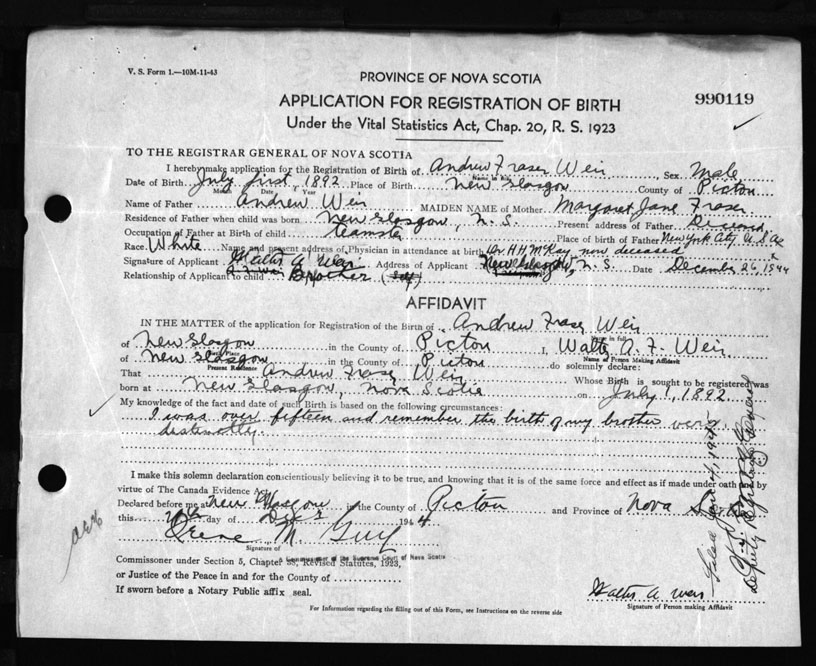 V. S. Form 1.—10M-11-43
PROVINCE OF NOVA SCOTIA
APPLICATION FOR REGISTRATION OF BIRTH
990119
Under the Vital Statistics Act, Chap. 20, R. S. 1923
TO THE REGISTRAR GENERAL OF NOVA SCOTIA
I hereby make application for the Registration of Birth of Andrew Fraser Weir Sex Male
Date of Birth July first, 1892 Place of Birth New Glasgow County of Picton
Month Date Year
Name of Father Andrew Weir MAIDEN NAME of Mother Margaret Jane Fraser
Residence of Father when child was born New Glasgow, N. S. Present address of Father Deceased
Occupation of Father at Birth of child teamster Place of birth of Father New York City U. S. A.
Race White Name and present address of Physician in attendance at birth Dr. H. H. McKay now deceased
Signature of Applicant Walter A Weir Address of Applicant New Glasgow, N. S. Date December 26, 1944
Relationship of Applicant to child Brother (self)
AFFIDAVIT
IN THE MATTER of the application for Registration of the Birth of Andrew Fraser Weir
Name in full
of New Glasgow in the County of Picton I, Walter A. F. Weir
Birth Place
Name of Person Making Affidavit
of New Glasgow in the County of Picton do solemnly declare:
Present Residence
That Andrew Fraser Weir Whose Birth is sought to be registered was
born at New Glasgow, Nova Scotia on July 1, 1892
My knowledge of the fact and date of such Birth is based on the following circumstances:
I was over fifteen and remember the birth of my brother very
distinctly.
I make this solemn declaration conscientiously believing it to be true, and knowing that it is of the same force and effect as if made under oath and by
virtue of The Canada Evidence Act.
Declared before me at New Glasgow in the County of Picton and Province of Nova Scotia
this day of Dec 1944
Irene M. Guy
Signature of
a Commissioner of the Supreme Court of Nova Scotia
Commissioner under Section 5, Chapter 38, Revised Statutes, 1923,
or Justice of the Peace in and for the County of
If sworn before a Notary Public affix seal.
Walter A Weir
Signature of Person making Affidavit
For Information regarding the filling out of this Form, see Instructions on the reverse side
Deputy Registrar General